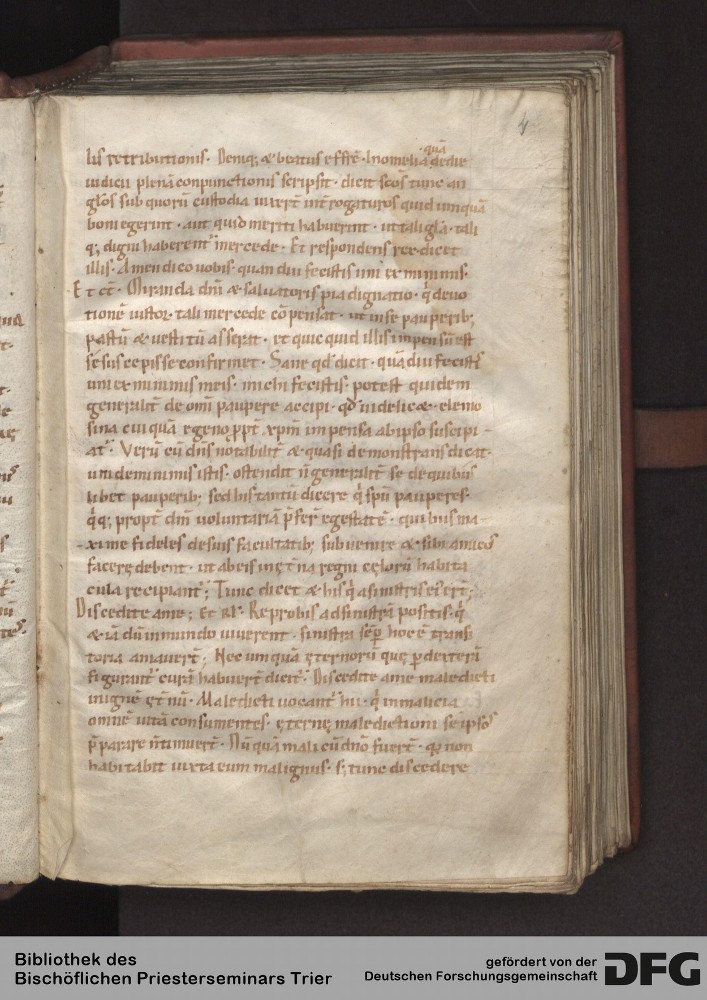 4
quā
lis retributionis. Deniq; & beatus effrē. In omelia, de die
iudicii plenā conpunctionis scripsit. dicit scōs tunc an
glōs sub quorū custodia uixert̄ int̄rogaturos quid umquā
boni egerint. aut quid meriti habuerint. ut tali glā. tali
q; digni haberent̄ mercede. Et respondens rex dicet
illis. Amen dico uobis. quan diu fecistis uni ex minimis.
Et cēt. Miranda dnī & saluatoris pia dignatio. q̄ deuo
tionē iustor. tali mercede cōpensat. ut in se pauperib;
pastū & uestitū asserat. et quicquid illis inpensū est
se suscepisse confirmet. Sane qđ dicit. quādiu fecistis
uni ex minimis meis. michi fecistis. potest quidem
generalit̄ de omī paupere accipi. qđ
sina cuiquā egeno ꝓpt̄ xpm̄ impensa ab ipso suscipi-
at̄. Verū cū dn̄s notabilit̄ & quasi demonstrans dicat.
uni de minimis istis. ostendit n̄ generalit̄ se de quibus
libet pauperib; sed his tantū dicere q̄ spū pauperes.
q̄q; propt̄ dm̄ uoluntariā p̄fer̄ egestatē. quibus ma-
xime fideles de suis facultatib; subuenire & sibi amicos
facere debent. ut ab eis in ęt̄na regni cęlorū habita
cula recipiant̄; Tunc dicet & his q̄ a sinistris ei' ert̄;
Discedite a me; Et Rl. Reprobis ad sinistrā positis. q̄
& iā dū in mundo uiuerent. sinistra sēp̄ hoc ē transi
toria amauert̄; Nec umquā ęternorū quę ꝑ dexterā
figurant̄ curā habuert̄ dicit̄. Discedite a me maledicti
in ignē ęt̄nū. Maledicti uocant̄ hii. q̄ in malicia
omnē uitā consumentes. ęternę maledictioni se ipsos
p̄parare n̄ timuert̄. Nū quā mali cū dn̄o fuert̄. quia non
habitabit iuxta eum malignus. s; tunc discedere
Bibliothek des
Bischöflichen Priesterseminars Trier
gefördert von der
Deutschen Forschungsgemeinschaft
DFG